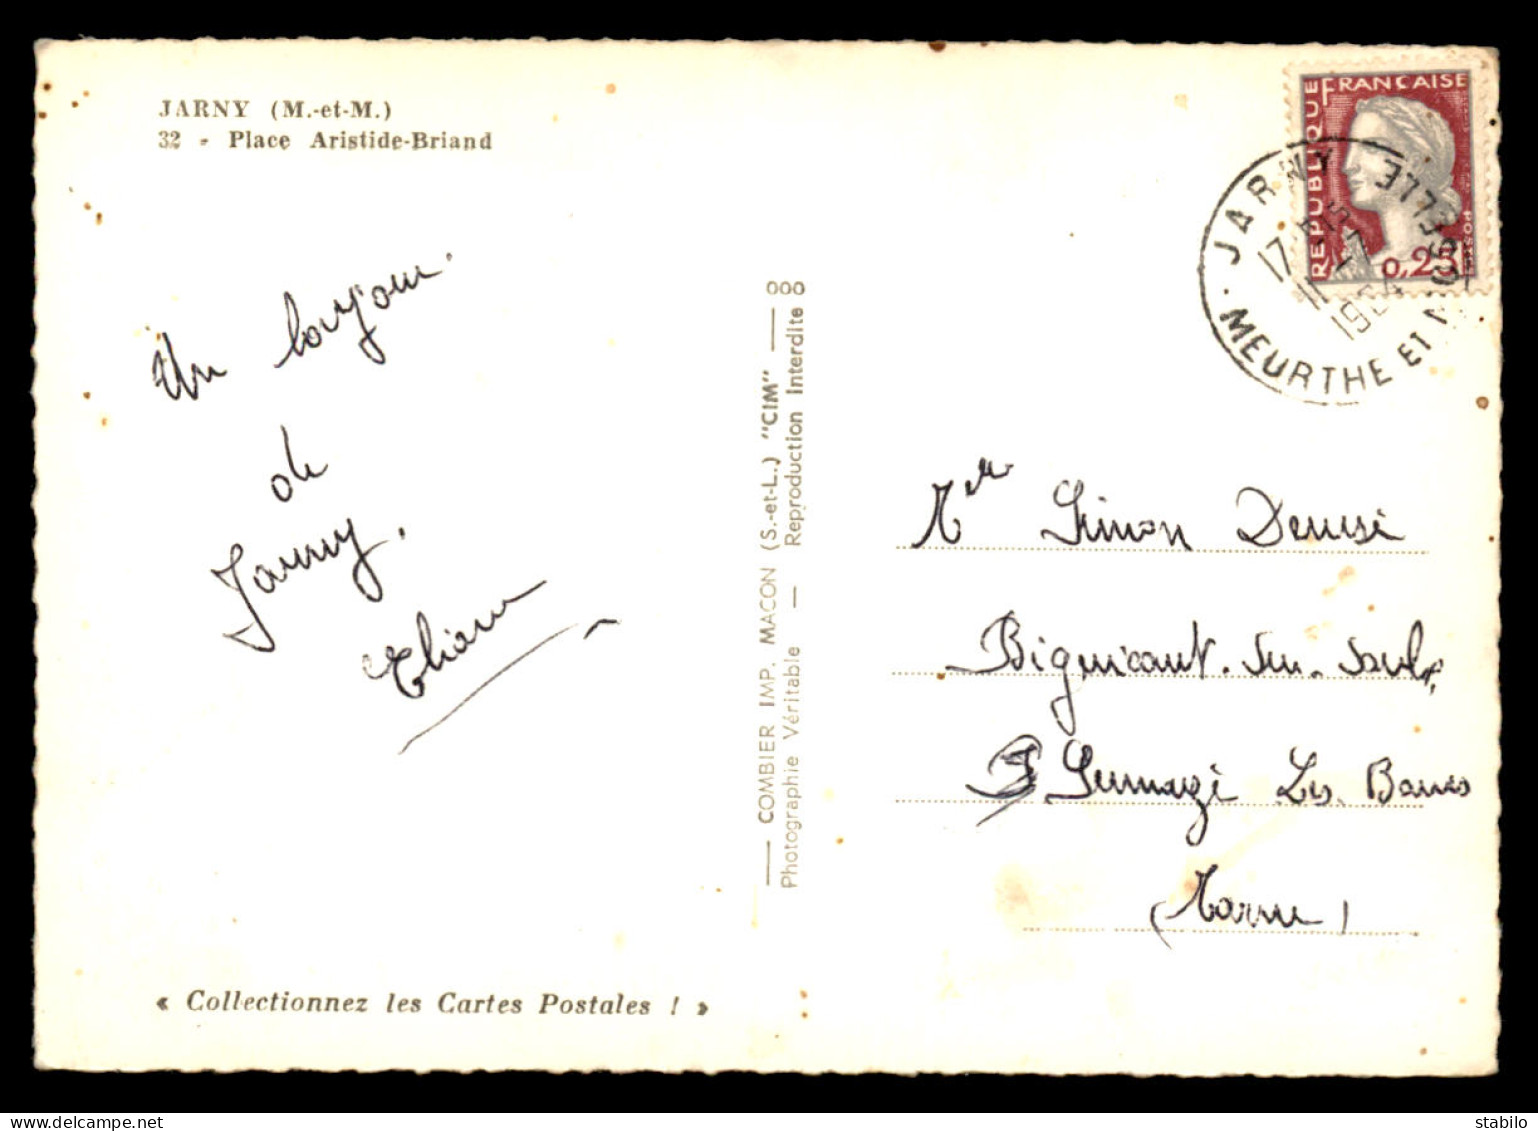 JARNY (M.-et-M.)
32 - Place Aristide-Briand
Un bonjour
de
Jarny.
Eliane
« Collectionnez les Cartes Postales ! »
COMBIER IMP. MACON (S.-et-L.) "CIM"
Photographie Véritable — Reproduction Interdite
REPUBLIQUE FRANÇAISE
POSTES
0,25
JARNY
17
1964
MEURTHE ET MOSELLE
Mr Simon Denise
Bignicourt. sur. Saulx
Sermaize Les Bains
(Marne)
stabilo